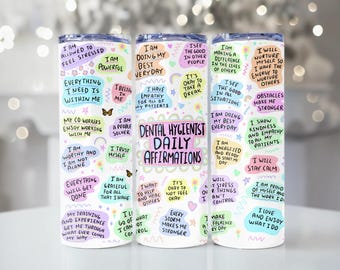 I AM
ALLOWED TO
FEEL STRESSED
I AM
POWERFUL
EVERYTHING
I NEED IS
WITHIN ME
MY CO WORKERS
ENJOY WORKING
WITH ME
I AM
WORTHY AND
I AM NOT
ALONE
I TRUST
MYSELF
EVERYTHING
WILL GET
DONE
I AM
GRATEFUL
FOR ALL
THAT I HAVE
MY TRAINING
AND EXPERIENCE
GET ME THROUGH
WHAT EVER COMES
MY WAY
I AM
DOING MY
BEST
EVERYDAY
I SEE
THE GOOD
IN OTHER
PEOPLE
I HAVE
EMPATHY
FOR ALL OF
PATIENTS
IT'S
OKAY TO
TAKE A
BREAK
I AM
A PROBLEM
SOLVER
DENTAL HYGIENIST
DAILY
AFFIRMATIONS
I WANT
TO HELP
AND HEAL
OTHERS
IT'S
OKAY TO
NOT FEEL
OKAY
EVERY
STORM
MAKES ME
STRONGER
I AM
MAKING A
DIFFERENCE
IN THE LIVES
OF OTHERS
I WILL
NURTURE
MYSELF SO I
HAVE THE
ENERGY TO
NURTURE
OTHERS
I SEE
THE GOOD
IN ALL
SITUATIONS
OBSTACLES
MAKE ME
STRONGER
I AM
DOING MY
BEST
EVERYDAY
I SHOW
KINDNESS
AND EMPATHY
TO ALL MY
PATIENTS
I AM
ENERGIZED
AND READY
TO START
MY DAY
I WILL
STAY CALM
I AM PROUD
OF MY WORK
I LOVE
AND ENJOY
WHAT I DO